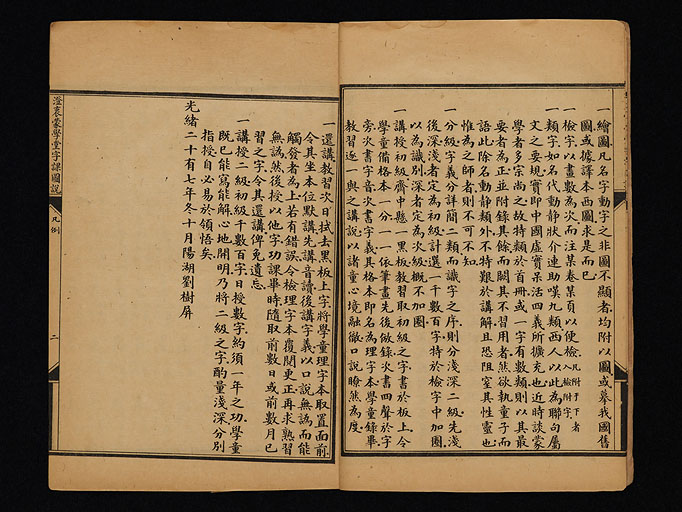 一繪圖凡名字動字之非圖不顯者均附以圖或摹我國舊
圖或據譯本西圖求是而已
一檢字以畫數為次而注某卷某頁以便檢入凡附于下者檢附字
一類字如名代動靜狀介連助嘆九類西人以此為聯句屬
文之要規實即中國虛實呆活四義所擴充也近時談蒙
學者多宗尚之故特類於首冊或一字有數類則以其最
要者為正並附錄其餘而闕其不習用者然欲執童子而
語此除名動靜類外不特艱於講解且恐阻窒其性靈也
惟為之師者則不可不知
一分級字義分詳簡二類而識字之序則分淺深二級先淺
後深淺者定為初級計選一千數百字特於檢字中加圈
以為識別深者定為次級概不加圈
一講授初級齋中縣一黑板教習取初級之字書於板上令
學童備格本一分一一依筆畫先後倣錄四聲於字
旁次書字音次書字義其格本即名為理字本學童錄畢
教習逐一與之講說以諸童心境融徹口說瞭然為度
一還講教習次日拭去黑板上字將學童理字本取置面前
令其坐本位默講先講音讀後講字義以口說無譌而能
觸發者為上若有錯誤令檢理字本覆閱更正再求熟習
無譌然後授以他字功課畢時隨取前數日或前數月已
習之字令其還講俾免遺忘
一講授二級初級千數百字日授數字約須一年之功學童
既已能寫能解心地開明乃將二級之字酌量淺深分別
指授自必易於領悟矣
光緒二十有七年冬十月陽湖劉樹屏
澄衷蒙學堂字課圖說
凡例
二